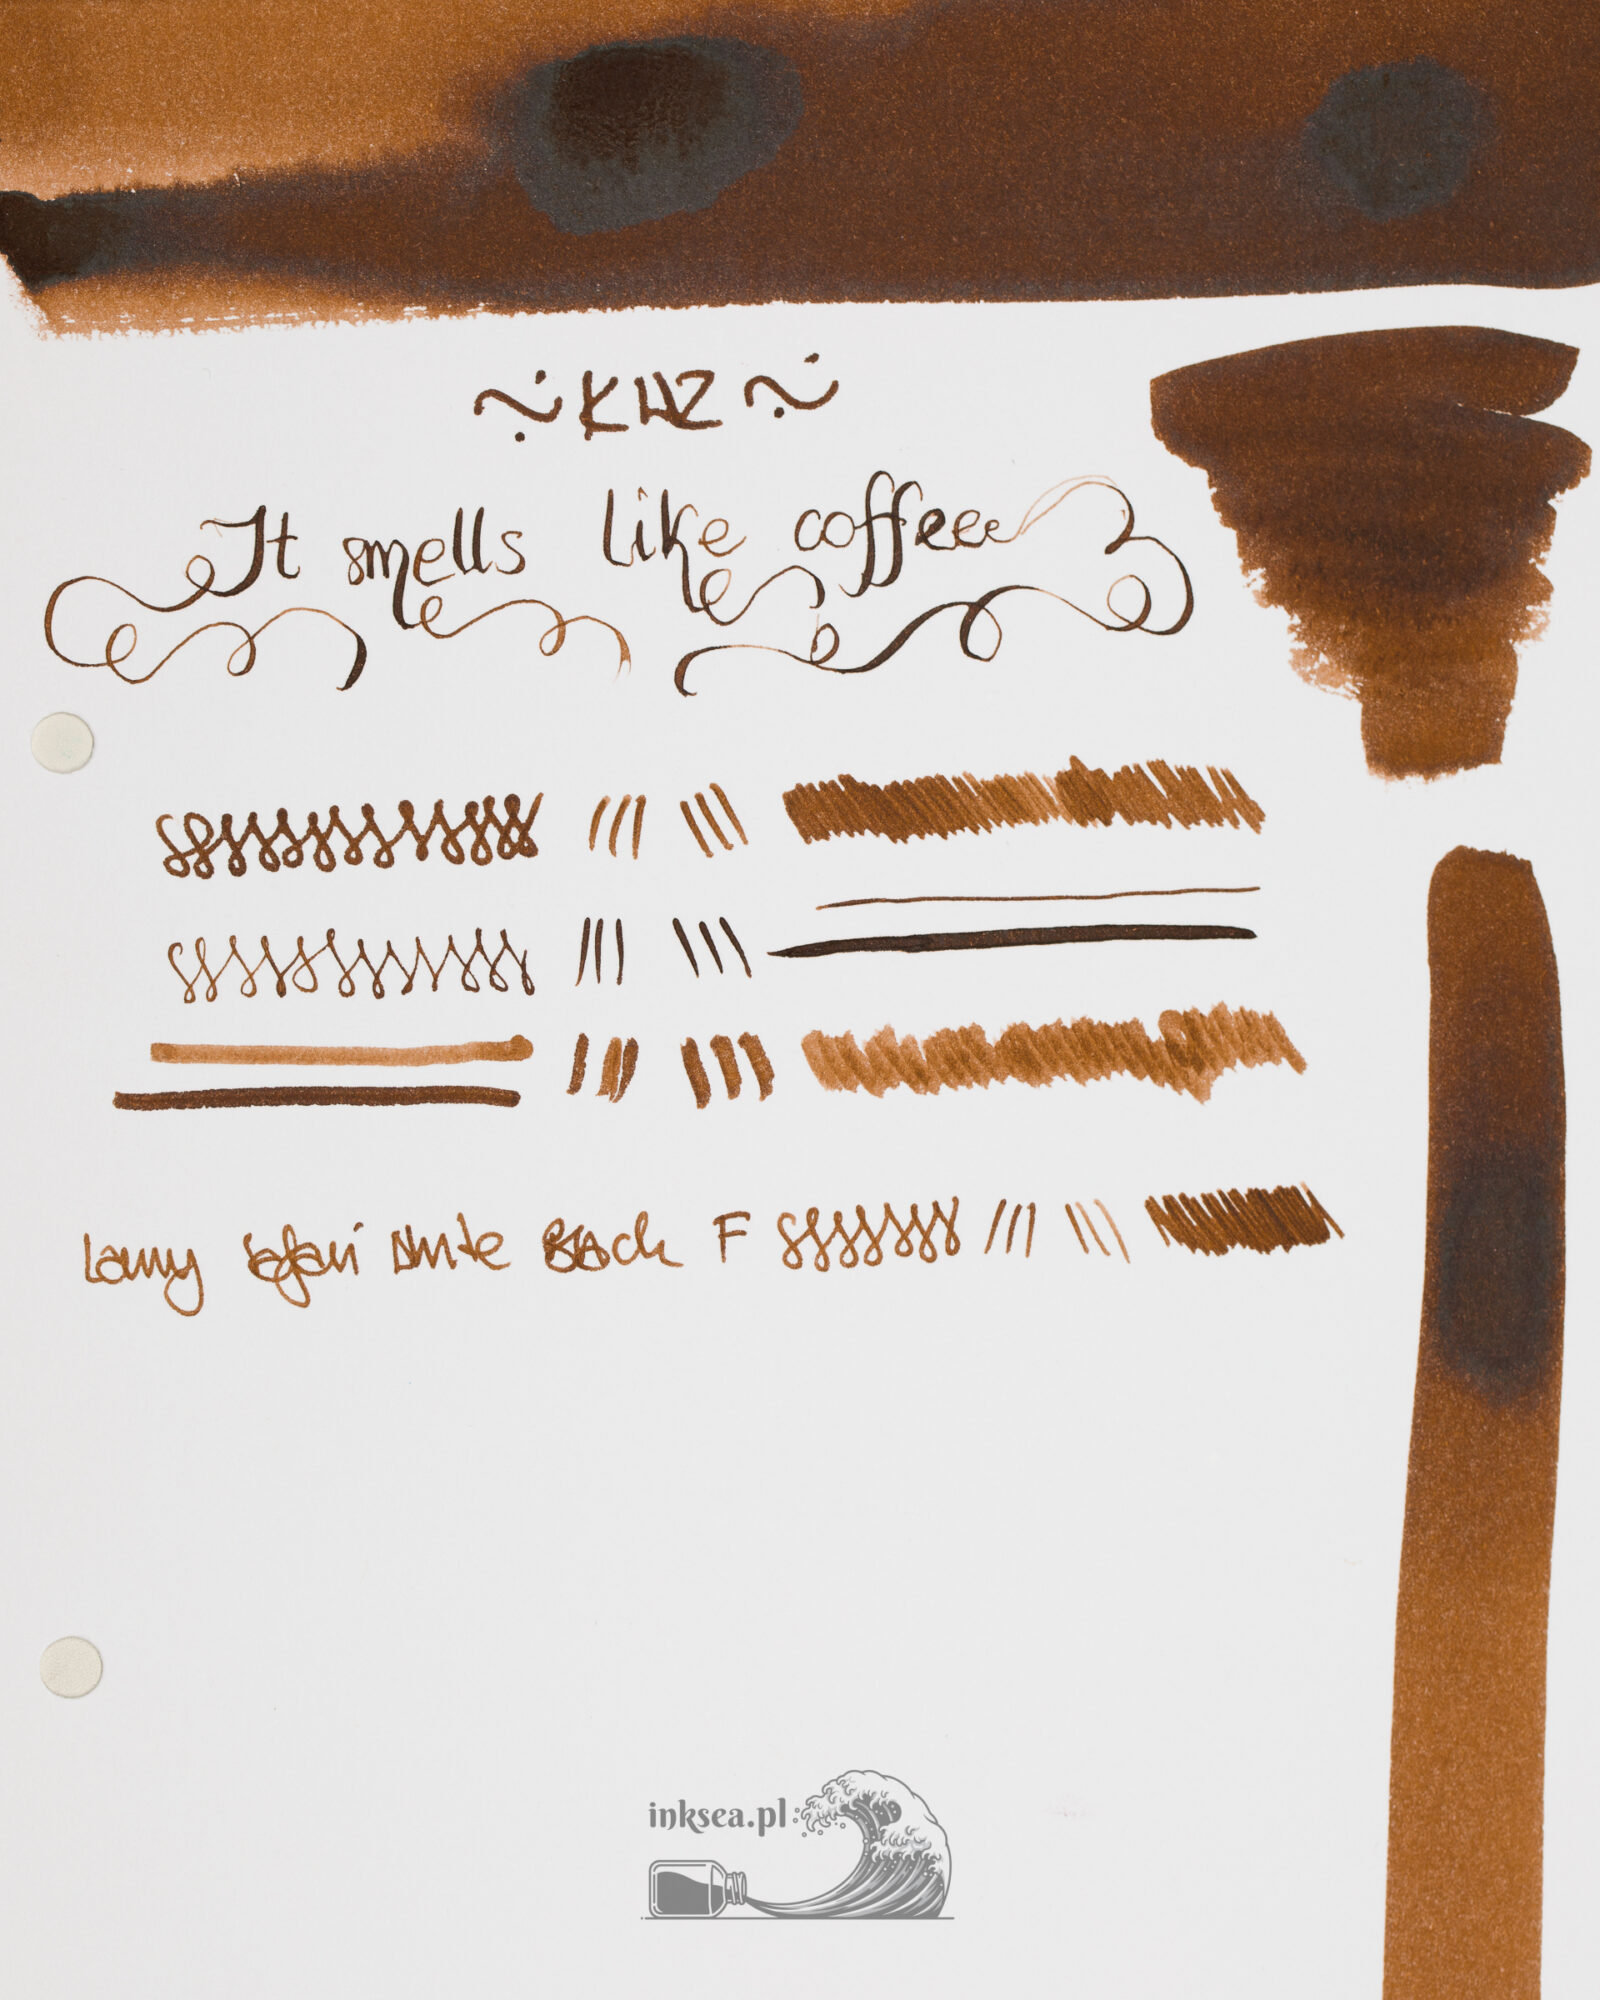 ~ KWZ ~
It smells like coffeee
Lamy Safari White Black F
inksea.pl